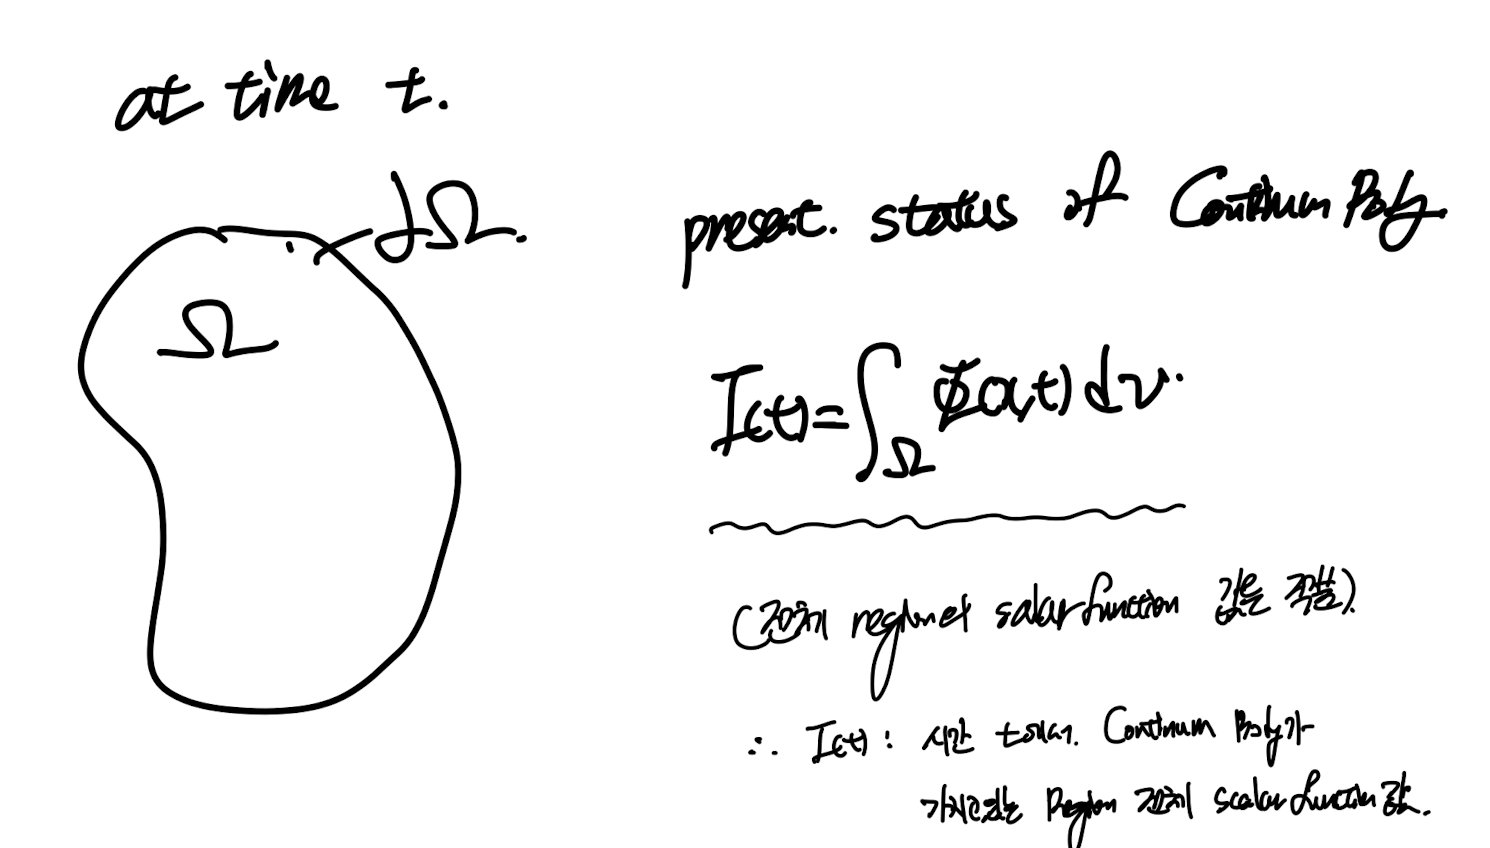 at time t.
∂Ω.
Ω
present. status of Continum Body
I(t)=∫_Ω Φ(x,t) dv.
(전체 region의 salar function 값을 적분).
∴ I(t) : 시간 t에서. Continum Body가
가지고있는 Region 전체 scalar function 값.